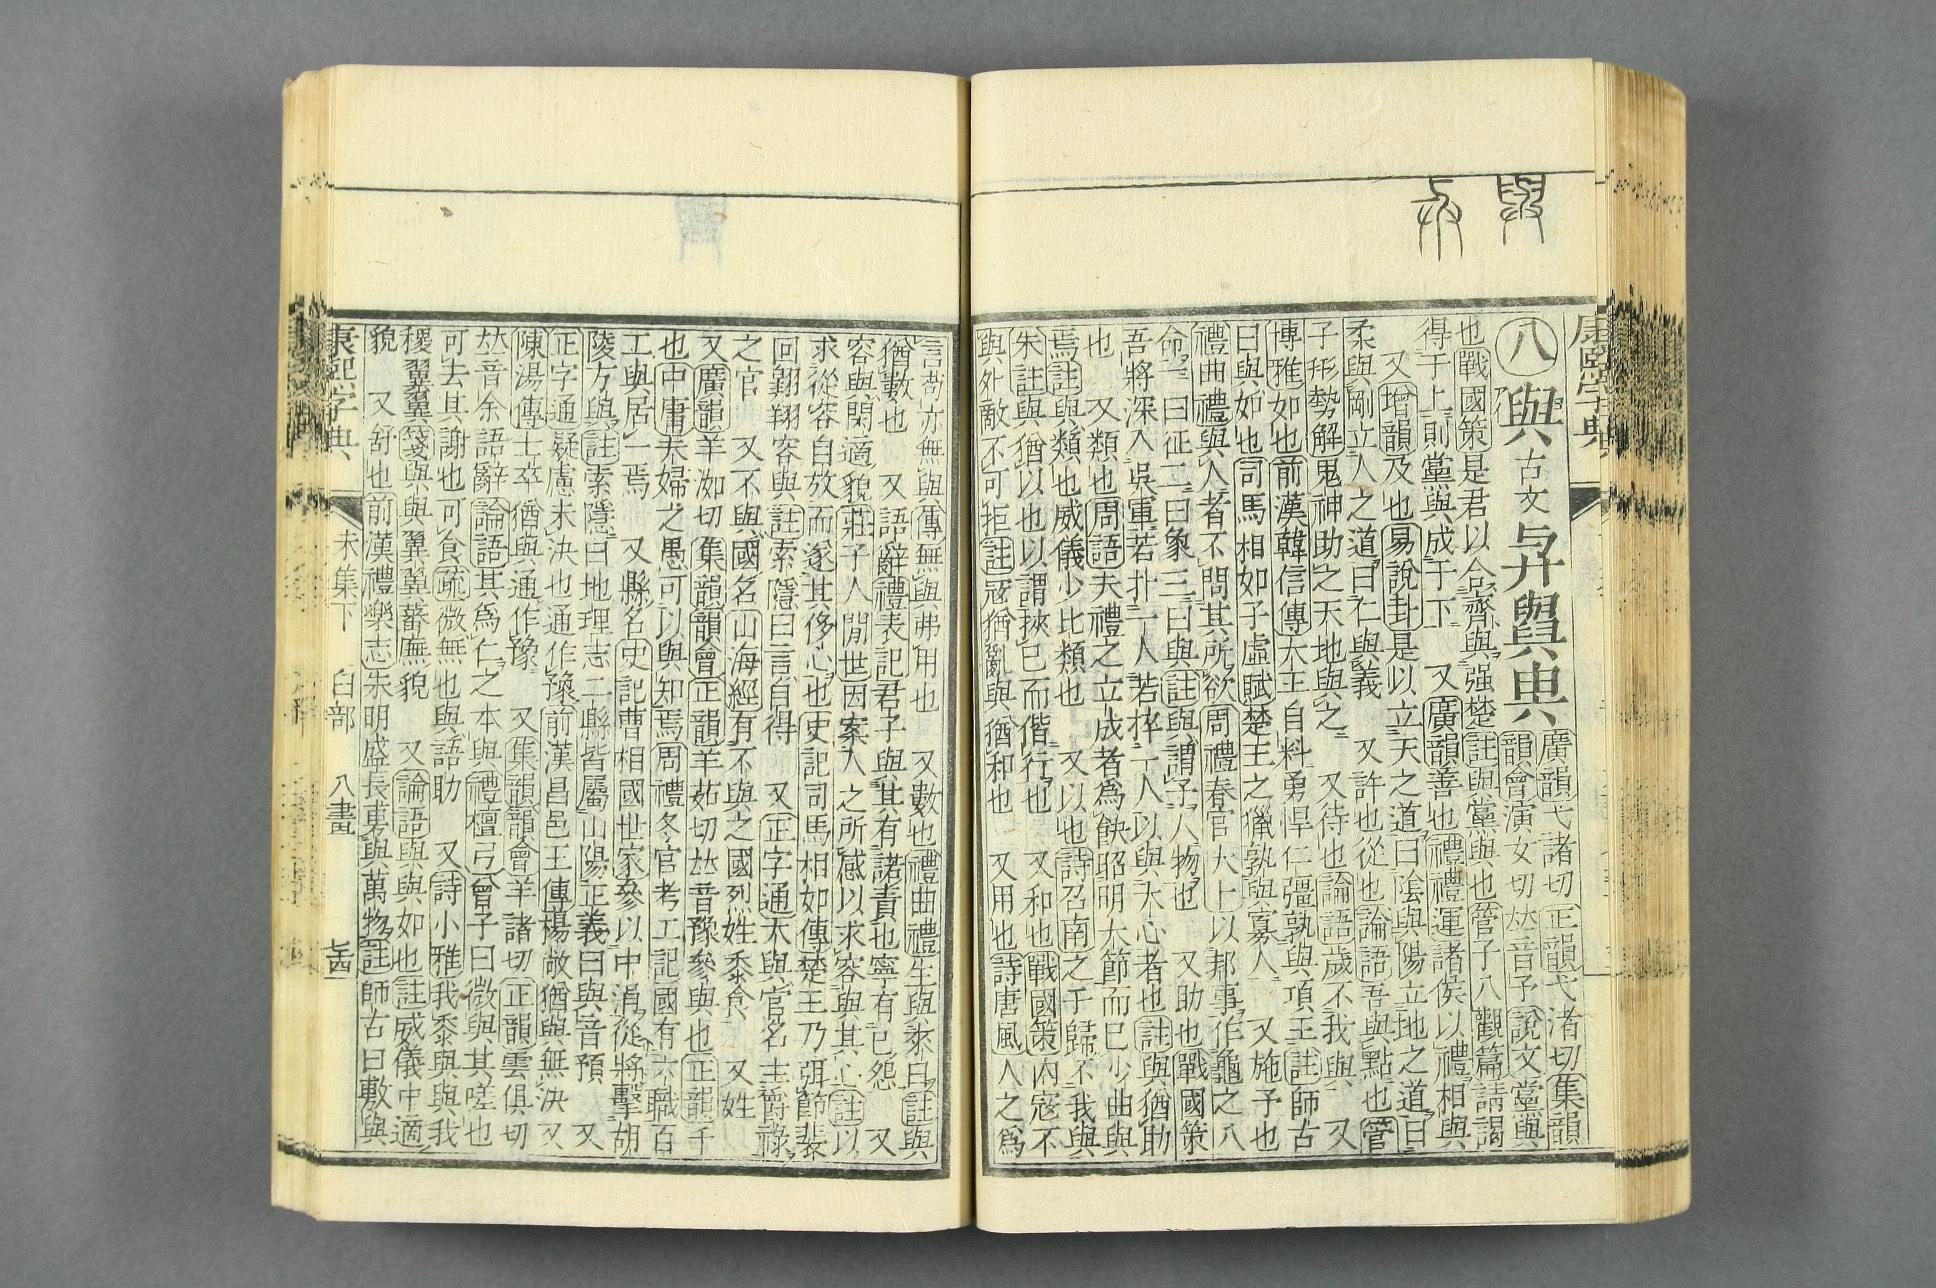 康熙字典
八 與 古文 与 㒜 𢌱 㪯 廣韻弋諸切正韻弋渚切集韻
韻會演女切𠀤音予說文黨與
也戰國策是君以合齊與强楚註與黨與也管子八觀篇請謁
得于上則黨與成于下 又廣韻善也禮禮運諸侯以禮相與
又增韻及也易說卦是以立天之道曰陰與陽立地之道曰
柔與剛立人之道曰仁與義 又許也從也論語吾與點也管
子形勢解鬼神助之天地與之 又待也論語歲不我與 又
博雅如也前漢韓信傳大王自料勇悍仁彊孰與項王註師古
曰與如也司馬相如子虛賦楚王之獵孰與寡人 又施予也
禮曲禮與人者不問其所欲周禮春官大卜以邦事作龜之八
命一曰征二曰象三曰與註與謂予人物也 又助也戰國策
吾將深入吳軍若扑一人若捽一人以與大心者也註與猶助
也 又類也周語夫禮之立成者爲飫昭明大節而已少曲與
焉註與類也威儀少比類也 又以也詩召南之子歸不我與
朱註與猶以也以謂挾已而偕行也 又和也戰國策內寇不
與外敵不可拒註寇猶亂與猶和也 又用也詩唐風人之爲
言苟亦無與傳無與弗用也 又數也禮曲禮生與來日註與
猶數也 又語辭禮表記君子與其有諾責也寧有已怨 又
容與閒適貌莊子人閒世因案人之所感以求容與其心註以
求從容自放而遂其侈心也史記司馬相如傳楚王乃弭節裴
回翱翔容與註索隱曰言自得 又正字通大與官名主爵祿
之官 又不與國名山海經有不與之國烈姓黍食 又姓
又廣韻羊洳切集韻韻會正韻羊茹切𠀤音豫參與也正韻干
也中庸夫婦之愚可以與知焉周禮冬官考工記國有六職百
工與居一焉 又縣名史記曹相國世家參以中涓從將擊胡
陵方與註索隱曰地理志二縣皆屬山陽正義曰與音預 又
正字通疑慮未決也通作豫前漢昌邑王傳楊敞猶與無決又
陳湯傳士卒猶與通作豫 又集韻韻會羊諸切正韻雲俱切
𠀤音余語辭論語其爲仁之本與禮檀弓曾子曰微與其嗟也
可去其謝也可食疏微無也與語助 又詩小雅我黍與與我
稷翼翼箋與與翼翼蕃廡貌 又論語與與如也註威儀中適
貌 又舒也前漢禮樂志朱明盛長旉與萬物註師古曰敷與
康熙字典 未集下 臼部 八畫